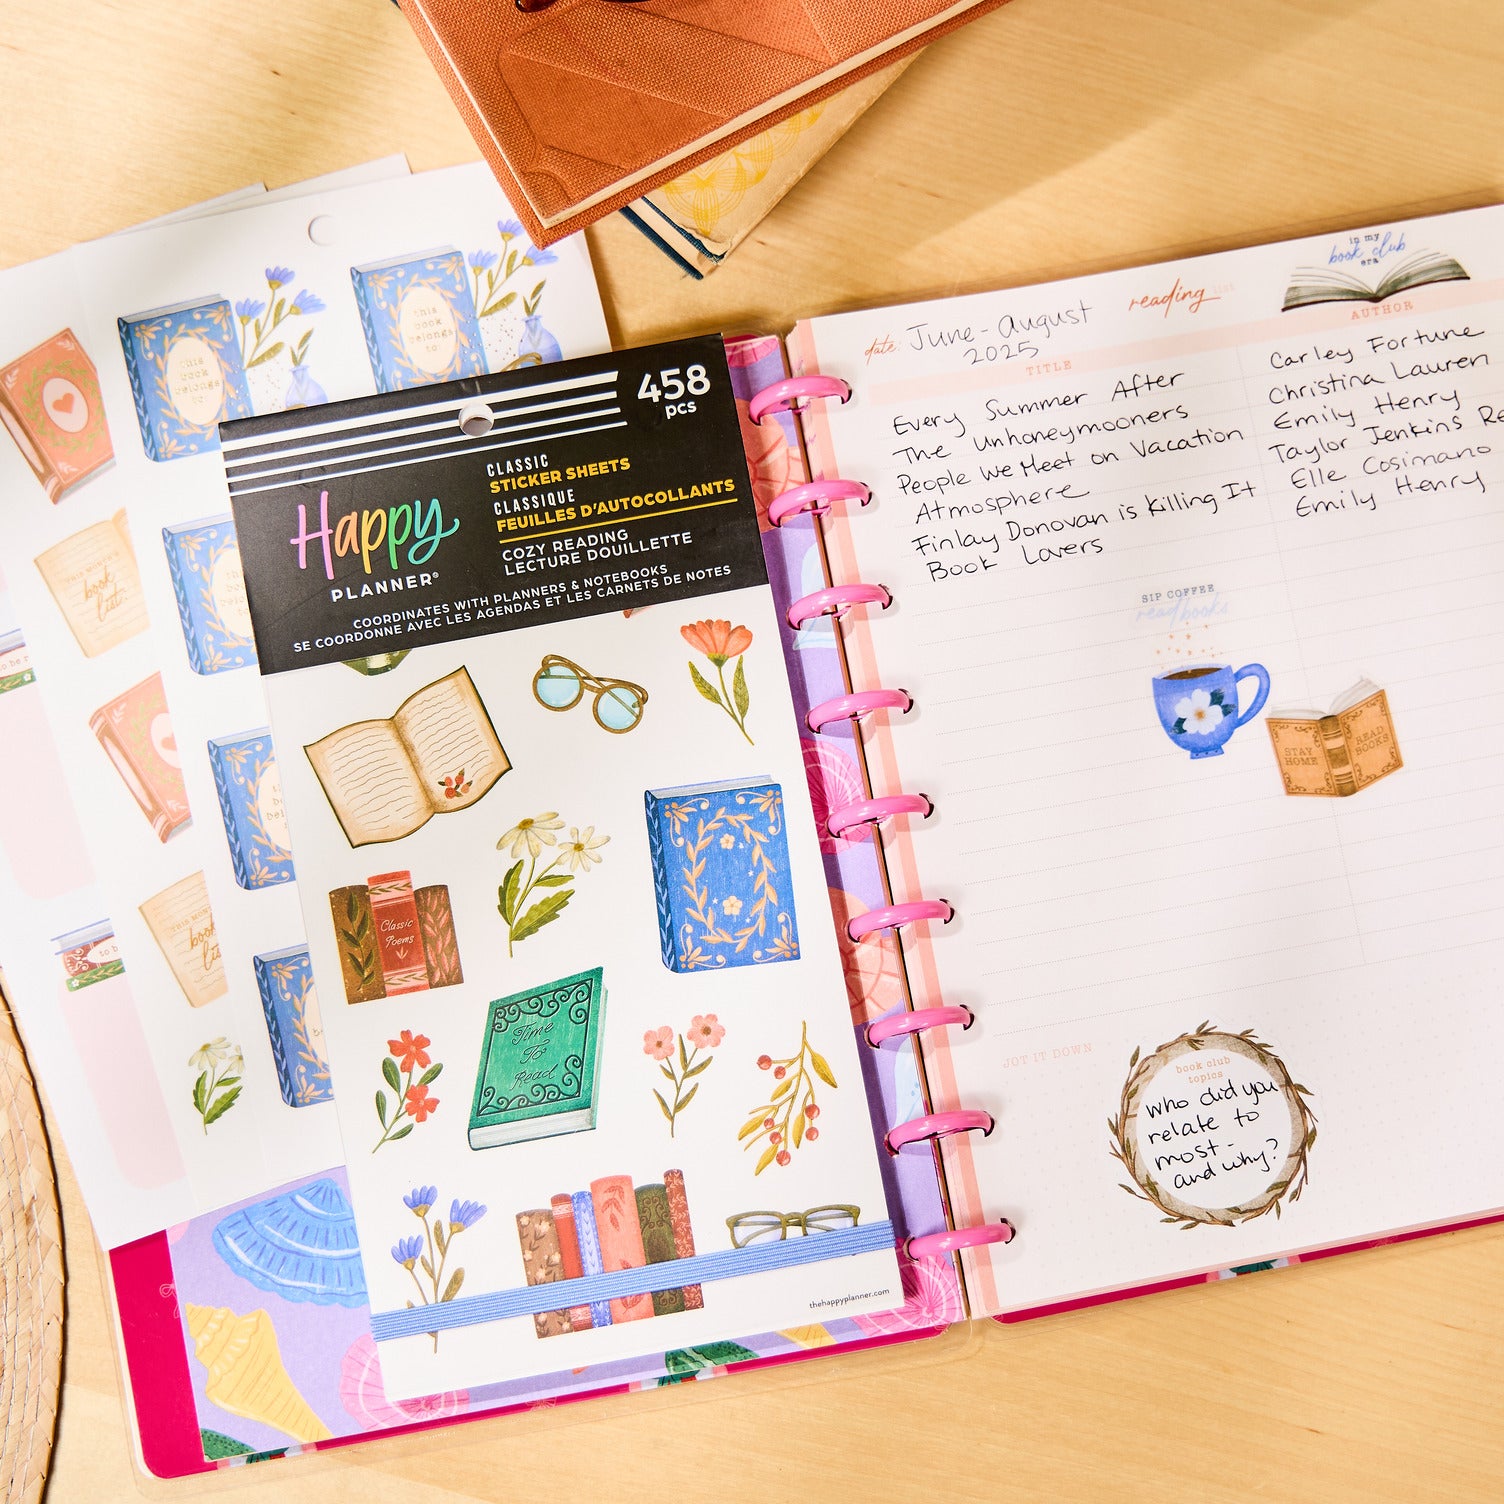 this
book
belongs
to:
this
book
belongs
to:
458
pcs
CLASSIC
STICKER SHEETS
CLASSIQUE
FEUILLES D'AUTOCOLLANTS
Happy
PLANNER®
COZY READING
LECTURE DOUILLETTE
COORDINATES WITH PLANNERS & NOTEBOOKS
SE COORDONNE AVEC LES AGENDAS ET LES CARNETS DE NOTES
THIS MONTH'S
book
list
THIS MONTH'S
Classic
Poems
Time
To
Read
thehappyplanner.com
in my
book club
era
reading list
date: June - August
2025
TITLE
AUTHOR
Every Summer After
Carley Fortune
The Unhoneymooners
Christina Lauren
People We Meet on Vacation
Emily Henry
Atmosphere
Taylor Jenkins Re
Finlay Donovan is Killing It
Elle Cosimano
Book Lovers
Emily Henry
SIP COFFEE
read books
STAY
HOME
READ
BOOKS
JOT IT DOWN
book club
topics
who did you
relate to
most -
and why?